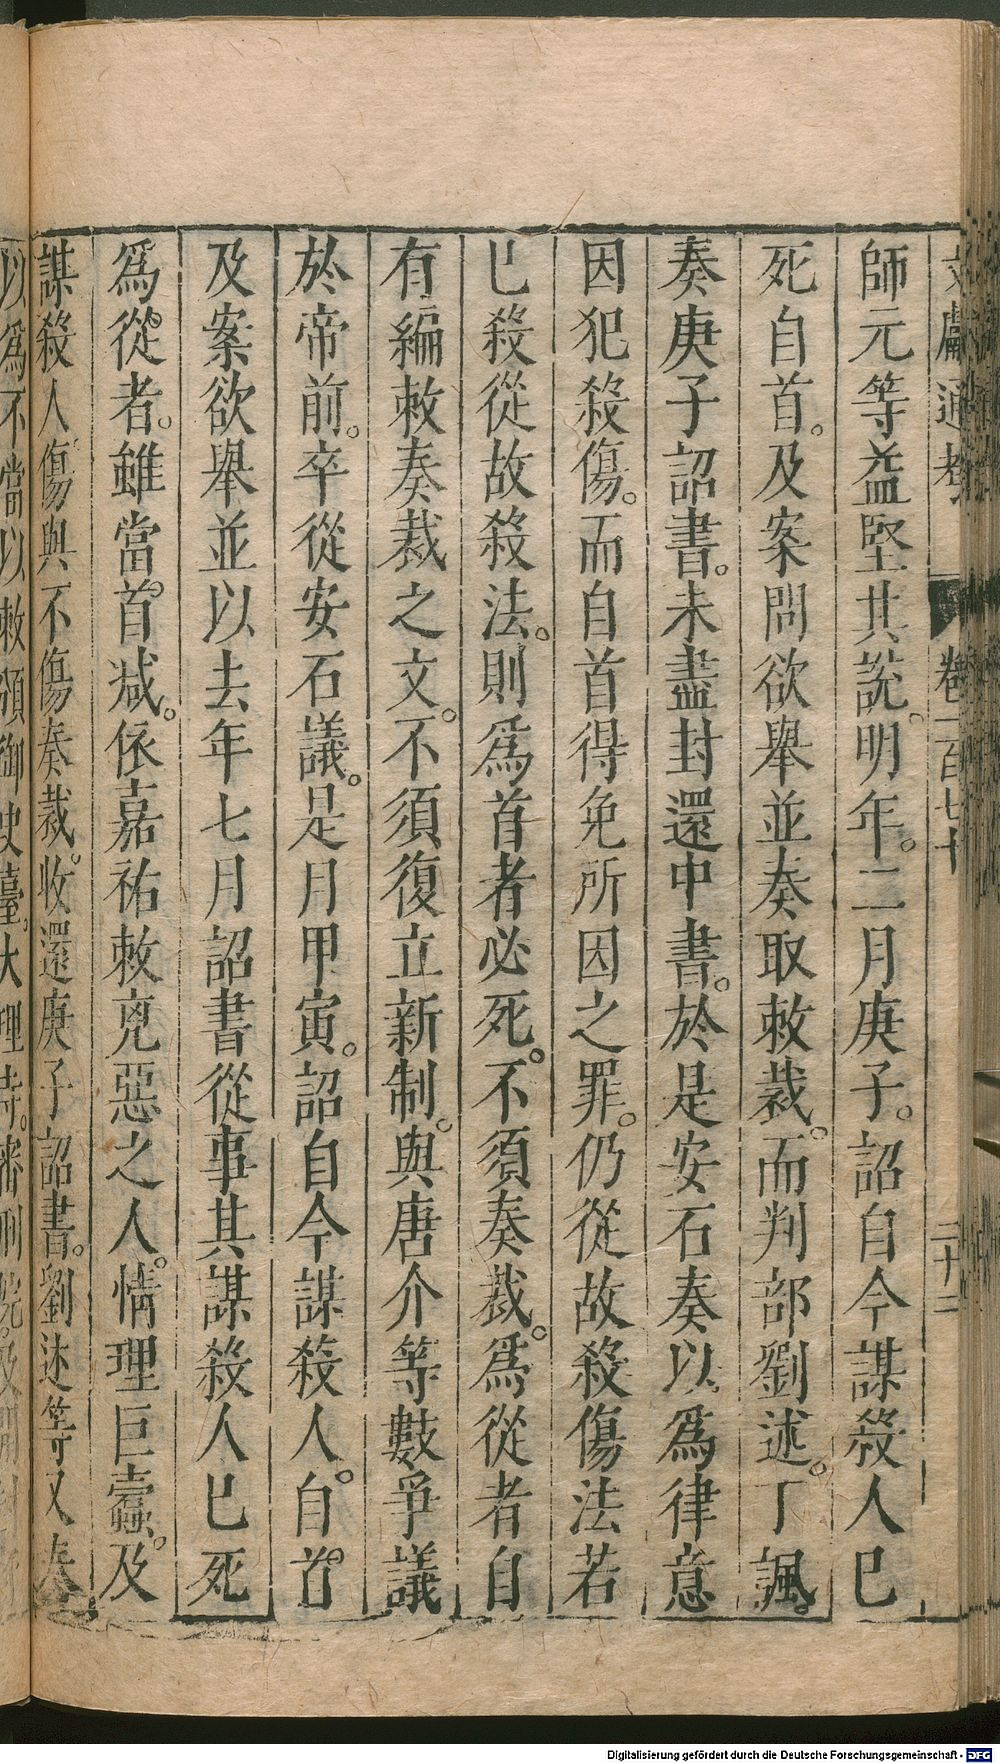 文獻通考 卷一百七十 二十二
師元等益堅其說。明年。二月庚子。詔自今謀殺人已
死自首。及案問欲舉並奏取敕裁。而判部劉述。丁諷。
奏庚子詔書。未盡封還中書。於是安石奏以爲律意
因犯殺傷。而自首得免所因之罪。仍從故殺傷法若
已殺從故殺法。則爲首者必死。不須奏裁。爲從者自
有編敕奏裁之文。不須復立新制。與唐介等數爭議
於帝前。卒從安石議。是月甲寅。詔自今謀殺人。自首
及案欲舉並以去年七月詔書從事其謀殺人已死
爲從者。雖當首减。依嘉祐敕兇惡之人。情理巨蠹。及
謀殺人傷與不傷奏裁。收還庚子詔書。劉述等又奏
以爲不當以敕頒御史臺。大理寺。審刑院。及
Digitalisierung gefördert durch die Deutsche Forschungsgemeinschaft - DFG